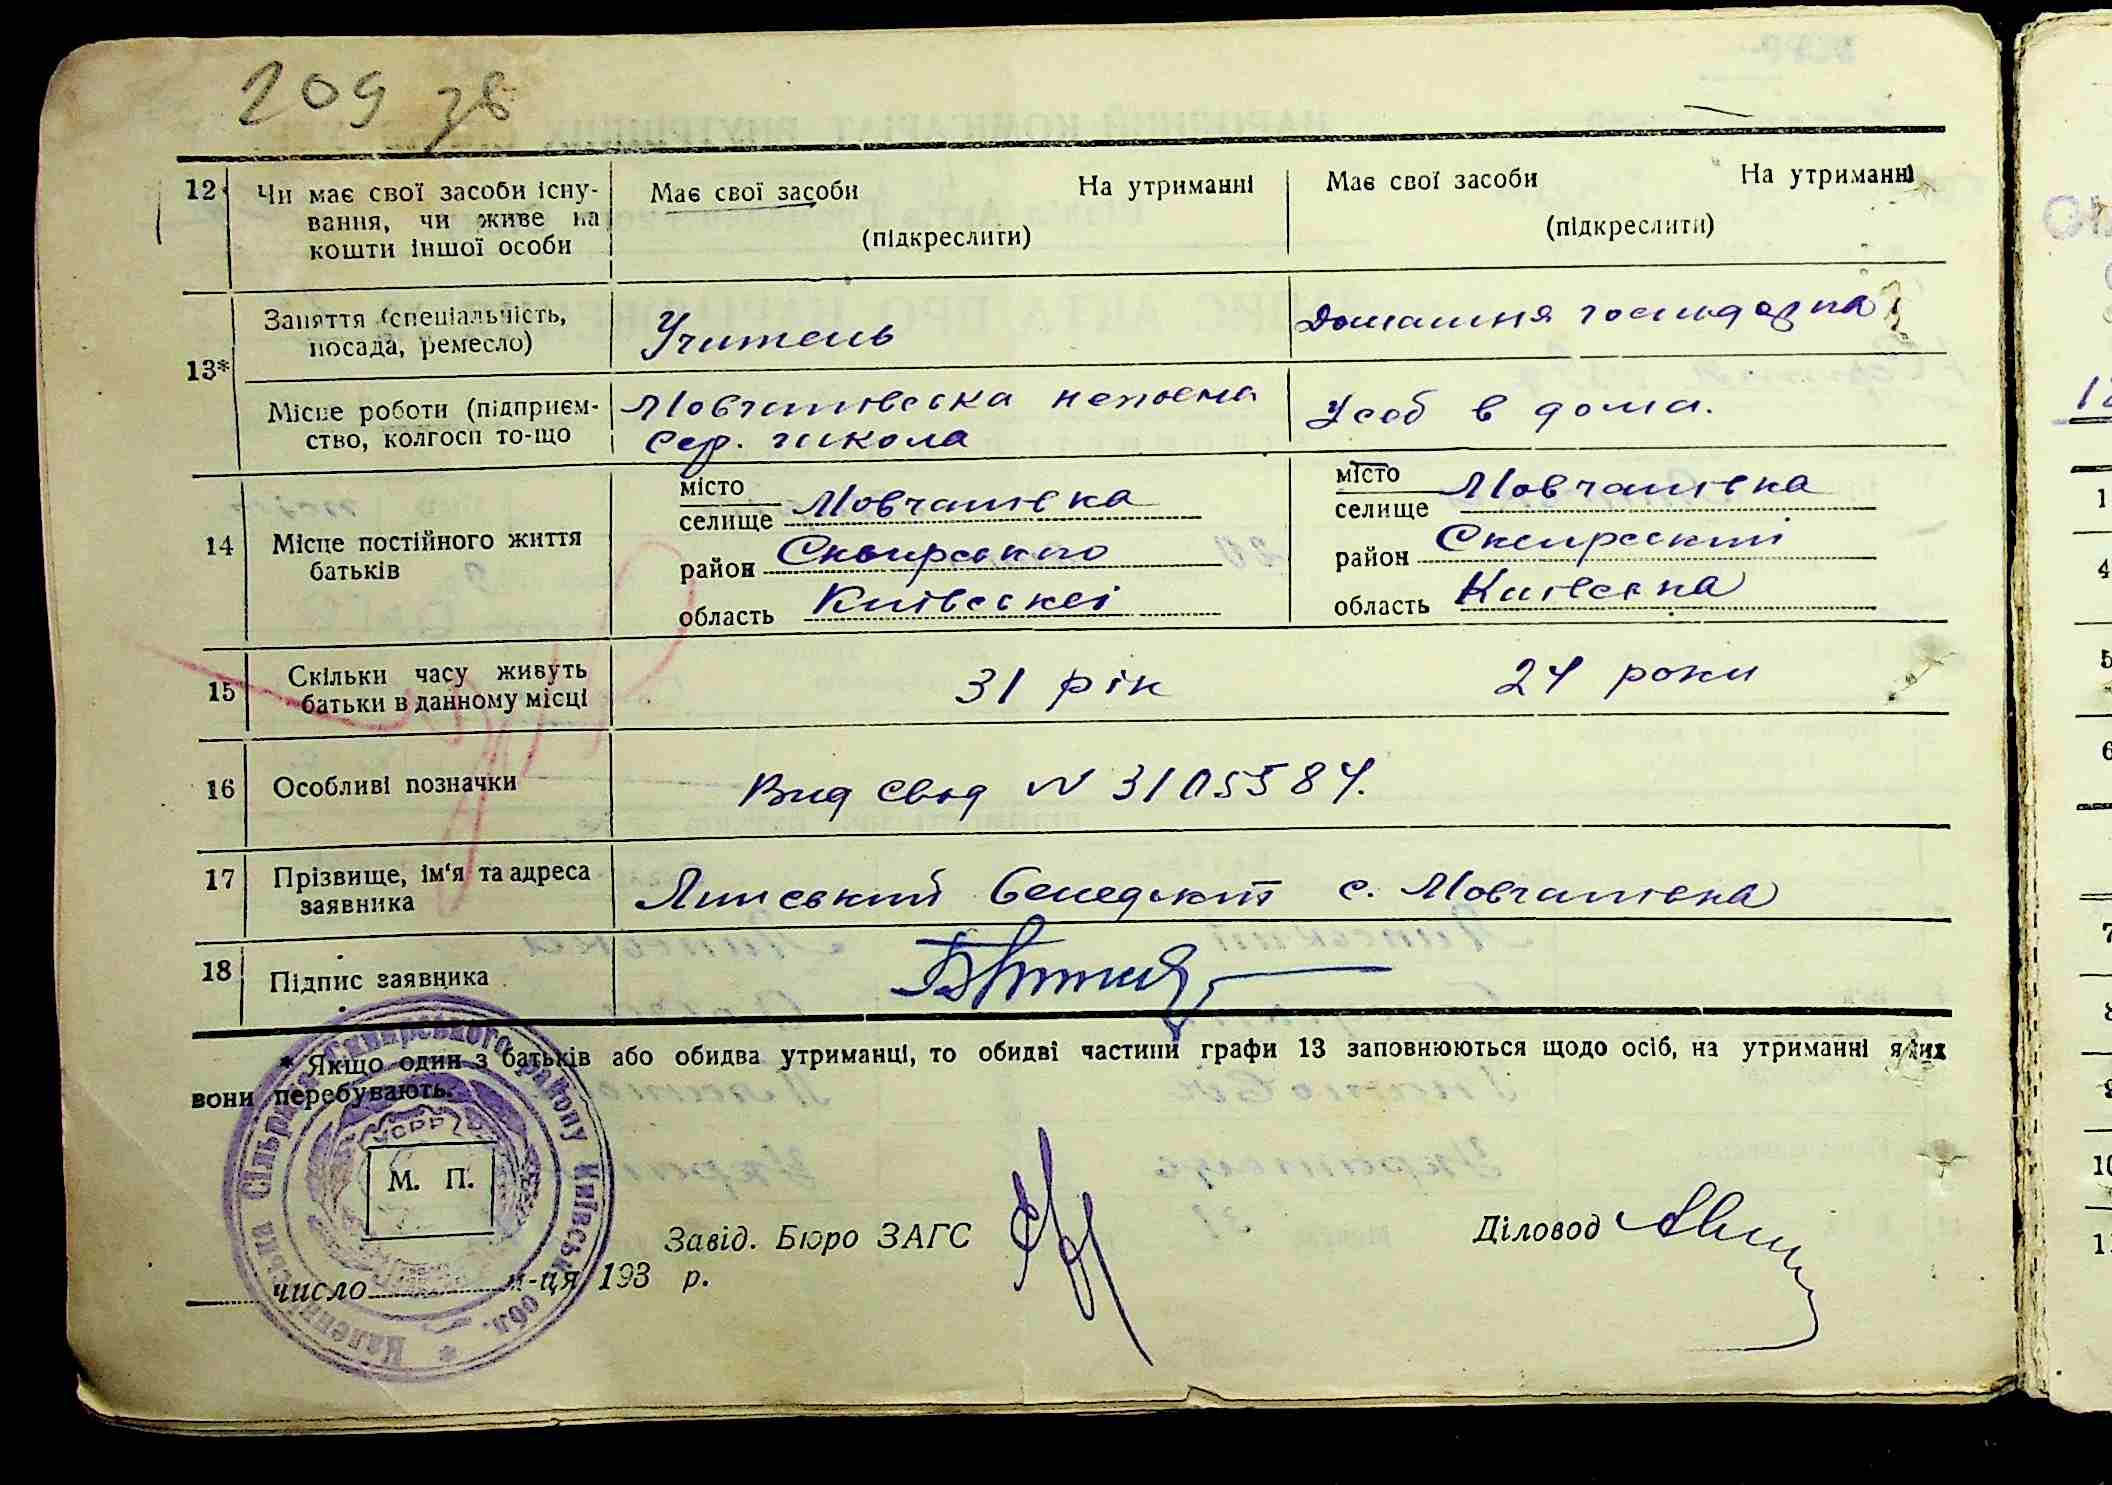 209 зв
12
Чи має свої засоби існу-
вання, чи живе на
кошти іншої особи
Має свої засоби На утриманні
(підкреслити)
Має свої засоби На утриманні
(підкреслити)
13*
Заняття (спеціальність,
посада, ремесло)
Учитель
Домашня господарка
Місце роботи (підприєм-
ство, колгосп то-що
Мовчанівська неповна
сер. школа
Усоб в дома.
14
Місце постійного життя
батьків
місто
селище Мовчанівка
район Сквирського
область Київської
місто
селище Мовчанівка
район Сквирський
область Київська
15
Скільки часу живуть
батьки в данному місці
31 рік
24 роки
16
Особливі позначки
Вид свод N 3105584.
17
Прізвище, ім'я та адреса
заявника
Липський Бенедикт с. Мовчанівка
18
Підпис заявника
* Якщо один з батьків або обидва утриманці, то обидві частини графи 13 заповнюються щодо осіб, на утриманні яких
вони перебувають.
Сільрада Сквирського району Київськ. обл. *
УСРР
М. П.
Завід. Бюро ЗАГС
Діловод
число м-ця 193 р.
1
4
5
6
7
8
9
10